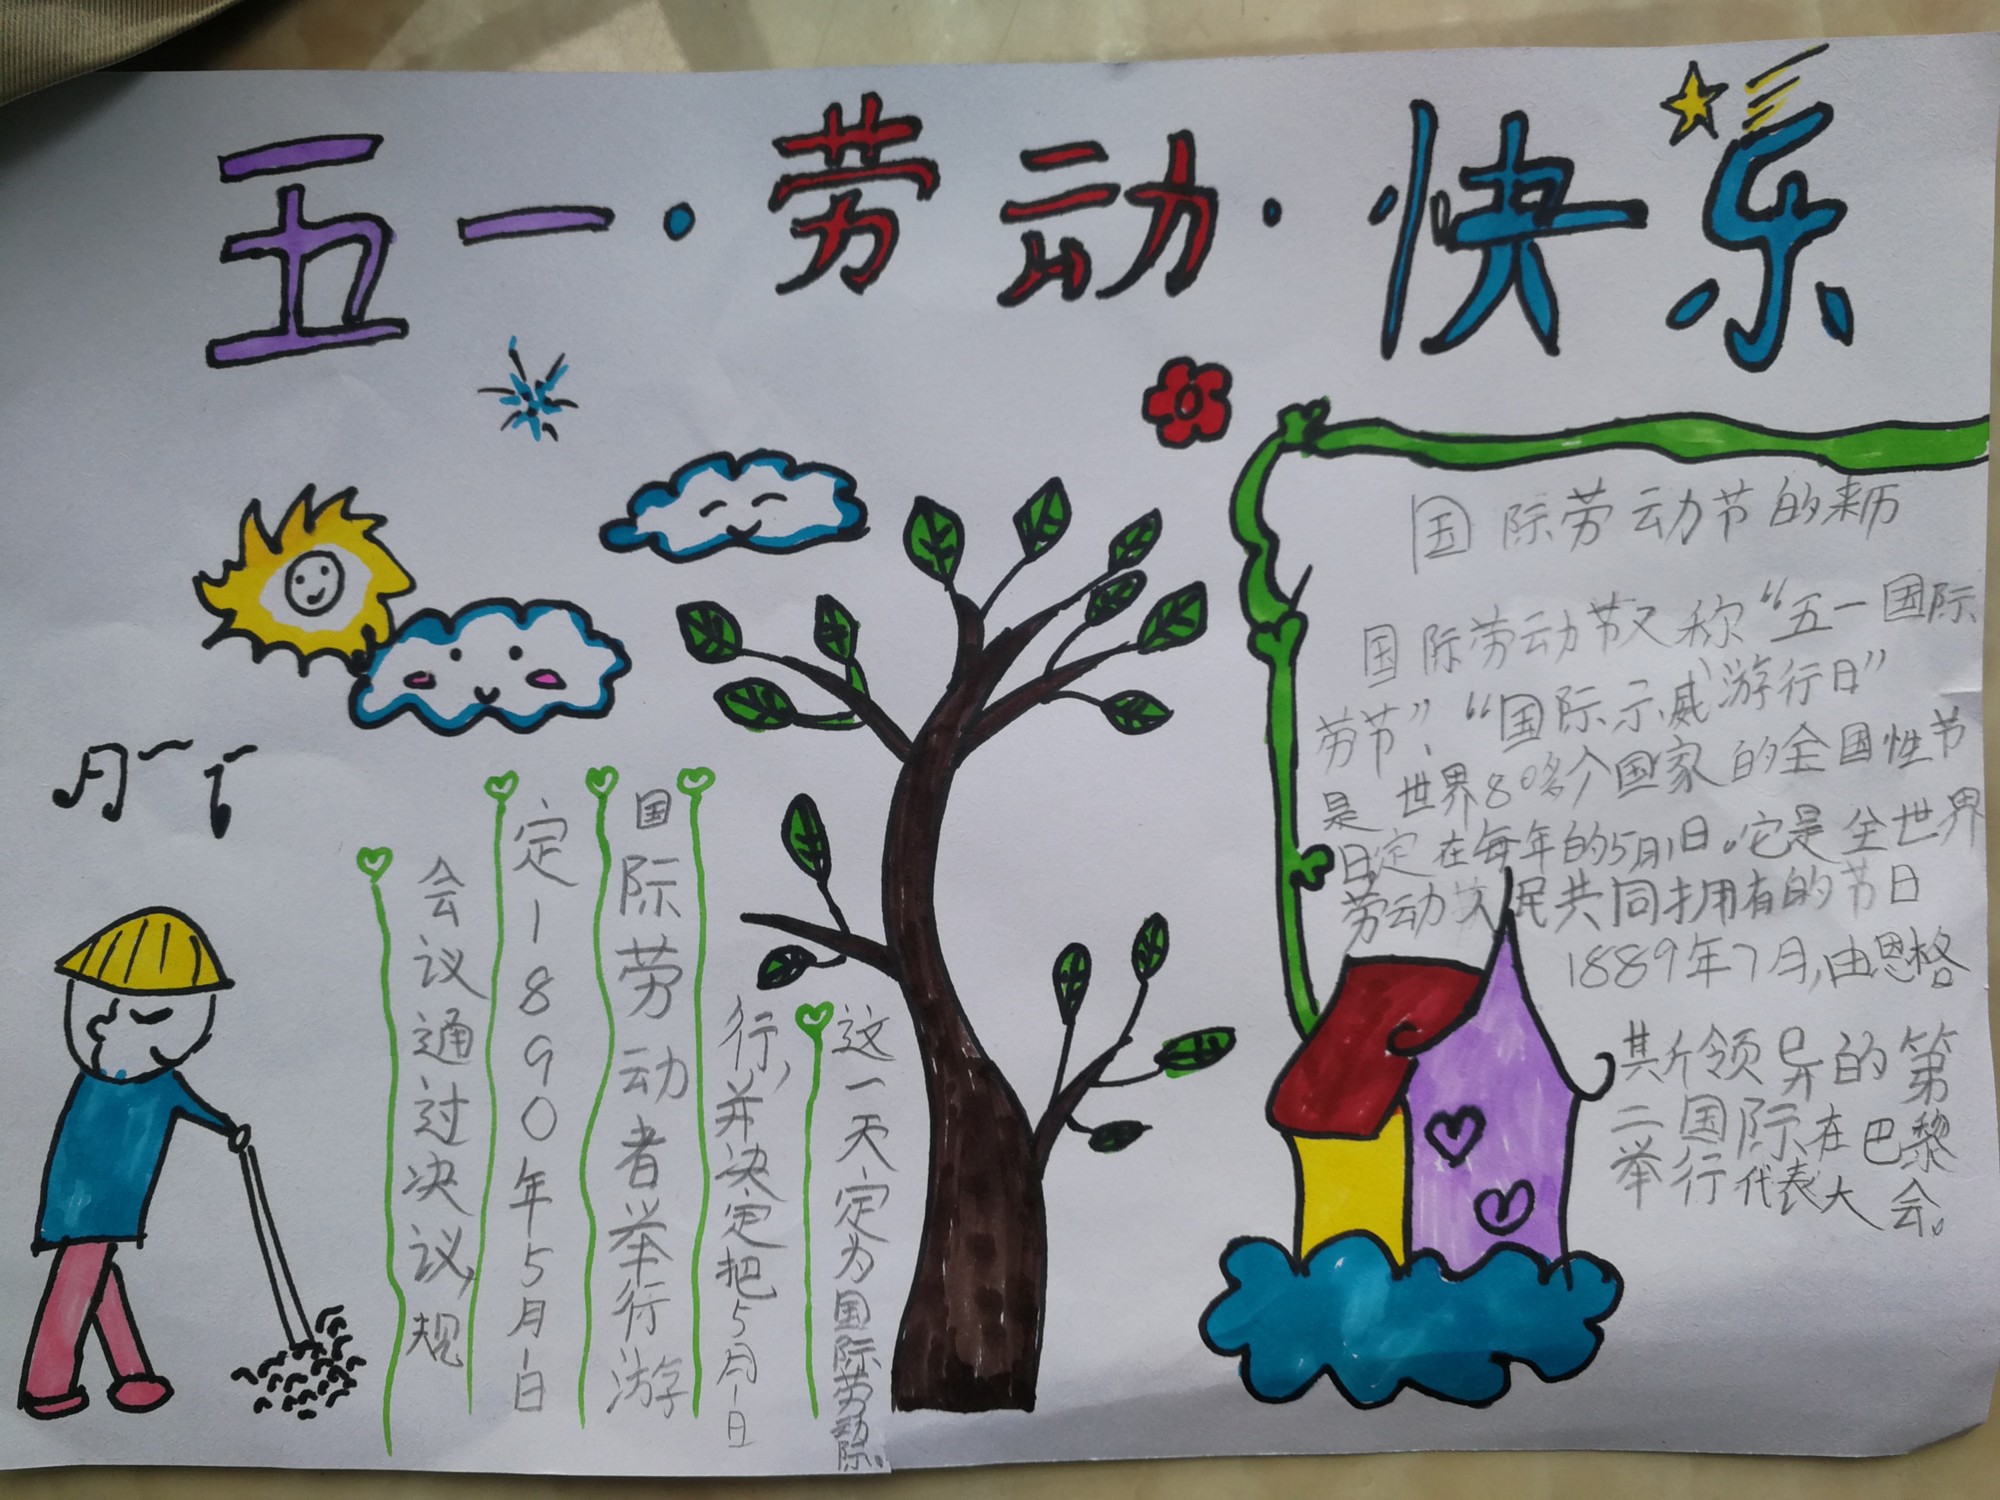 五一·劳动·快乐
国际劳动节的来历
国际劳动节又称“五一国际
劳节”、“国际示威游行日”
是世界80多个国家的全国性节
日定在每年的5月1日。它是全世界
劳动人民共同拥有的节日
1889年7月,由恩格
斯领导的第
二国际在巴黎
举行代表大会。
会议通过决议,规
定1890年5月1日
国际劳动者举行游
行,并决定把5月1日
这一天定为国际劳动际。